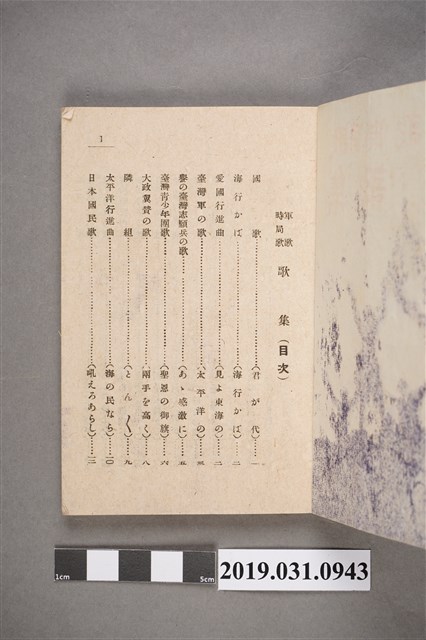 軍歌時局歌 歌集(目次)
國歌……(君が代)……一
海行かば……(海行かば)……二
愛國行進曲……(見よ東海の)……二
臺灣軍の歌……(太平洋の)……三
譽の臺灣志願兵の歌……(あゝ感激に)……五
臺灣靑少年團歌……(聖恩の御旗)……六
大政翼贊の歌……(兩手を高く)……八
隣組……(とん〱)……九
太平洋行進曲……(海の民なら)……一〇
日本國民歌……(吼えろあらし)……一二
1
1cm
5cm
2019.031.0943